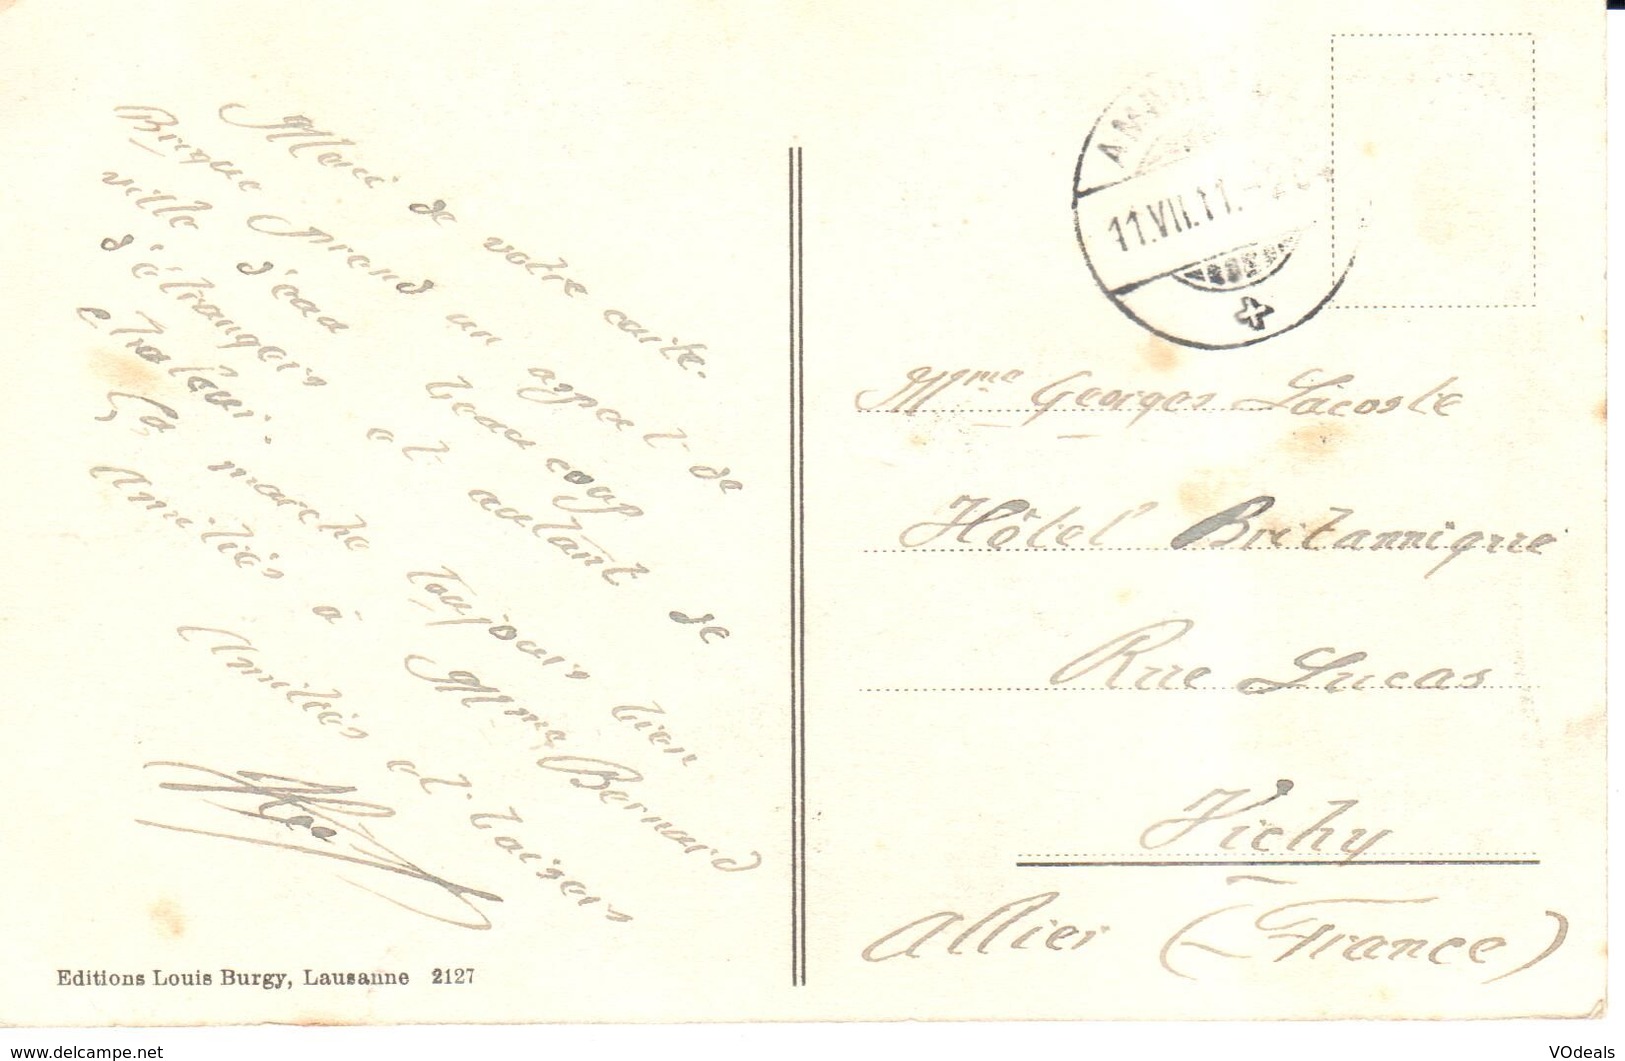 Merci de votre carte.
Brigue prend un aspect de
ville d'eau beaucoup
d'étrangers et autant de
chaleur.
Ça marche toujours bien
Amitiés à Mme Bernard
Amitiés et baisers
Editions Louis Burgy, Lausanne 2127
11.VII.11.
Mme Georges Lacoste
Hôtel Britannique
Rue Lucas
Vichy
Allier (France)
www.delcampe.net
VOdeals